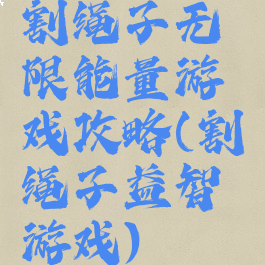 割绳子无
限能量游
戏攻略(割
绳子益智
游戏)